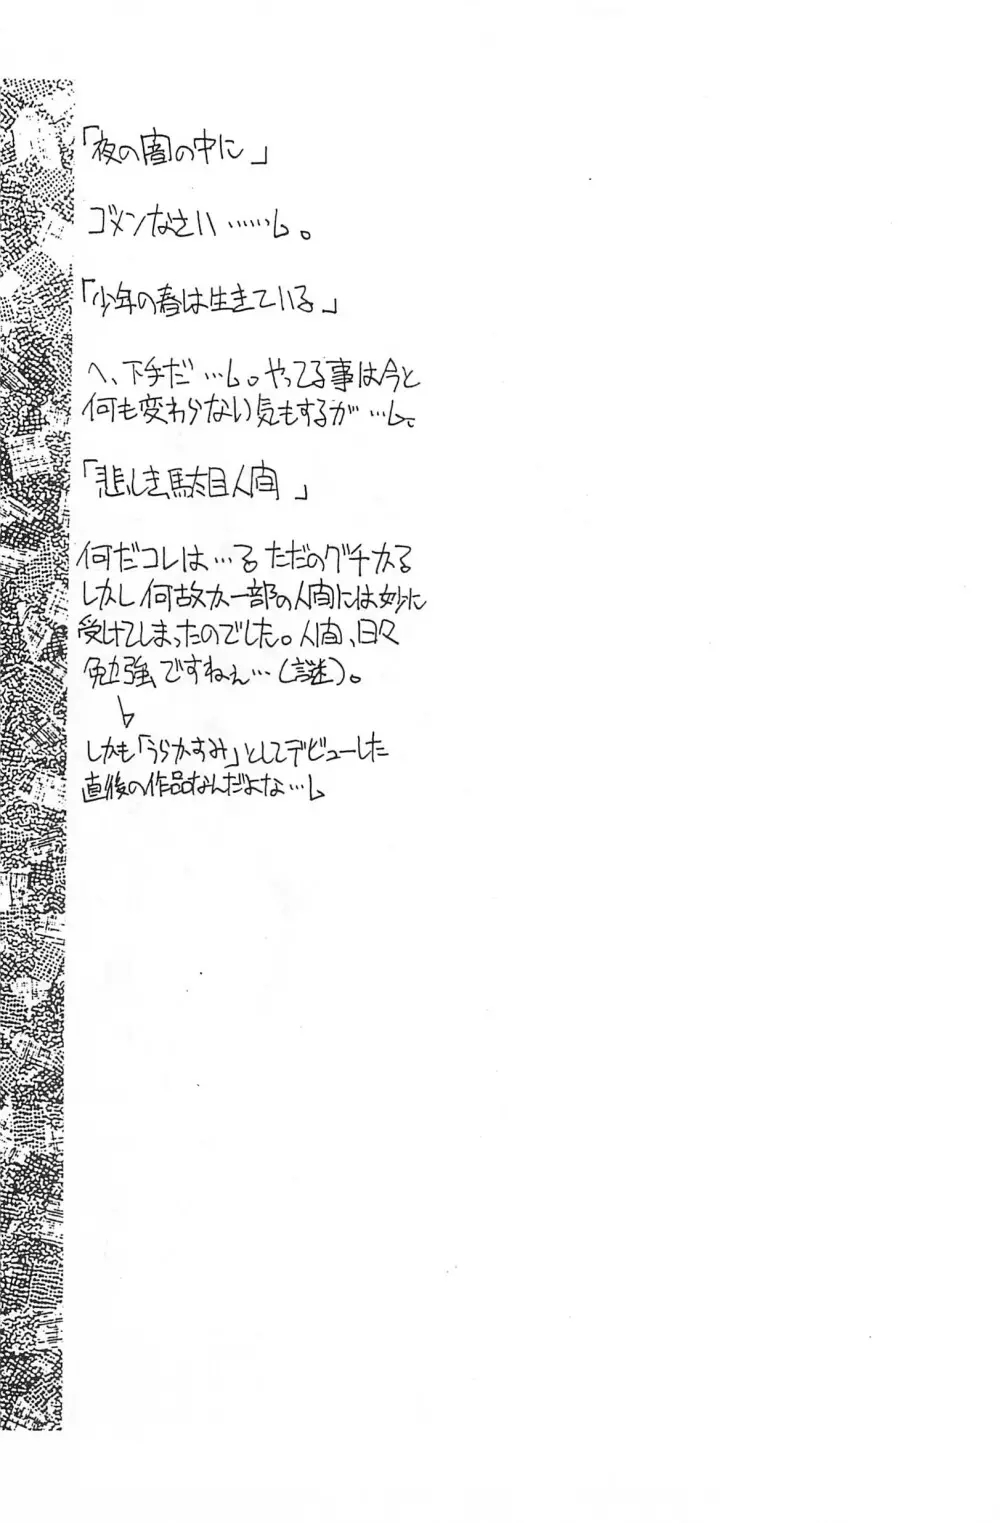 「夜の闇の中に」
ゴメンなさい……し。
「少年の春は生きている」
へ、下手だ…し。やってる事は今と
何も変わらない気もするが…し、
「悲しき駄目人間」
何だコレは…る ただのグチかる
しかし何故か一部の人間には妙に
受けてしまったのでした。人間、日々
勉強ですねぇ…(謎)。
しかも「うらかすみ」としてデビューした
直後の作品なんだよな…し